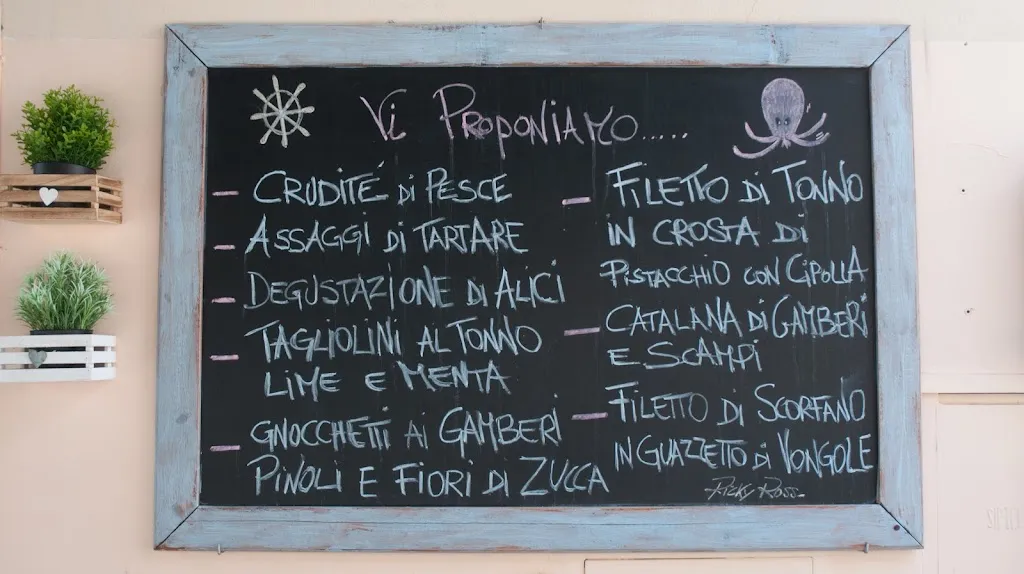 Vi Proponiamo.....
- Crudité di Pesce
- Assaggi di Tartare
- Degustazione di Alici
- Tagliolini al Tonno
Lime e Menta
- Gnocchetti ai Gamberi
Pinoli e Fiori di Zucca
- Filetto di Tonno
in Crosta di
Pistacchio con Cipolla
- Catalana di Gamberi
e Scampi
- Filetto di Scorfano
in Guazzetto di Vongole